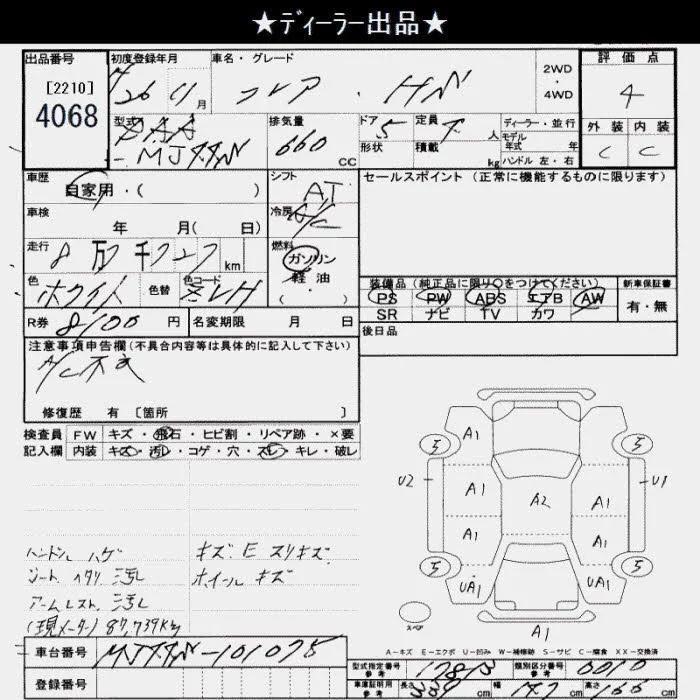 ★ディーラー出品★
出品番号 初度登録年月 車名・グレード 評価点
[2210] 26 11月 フレア・HV 2WD・4WD 4
4068
型式 排気量 ドア 5 定員 人 ディーラー・並行 外装 内装
DAA- 660 CC 形状 積載 kg モデル年式 年 C C
ハンドル 左・右
車歴 自家用・( ) シフト AT セールスポイント (正常に機能するものに限ります)
車検 年 月( 日) 冷房 A/C
走行 8万 千 km 燃料 ガソリン・軽油・( )
色 ホワイト 色替 色コード
装備品(純正品に限り○をつけてください) 新車保証書
PS PW ABS エアB AW 有・無
SR ナビ TV カワ
R券 8100 円 名変期限 月 日 後日品
注意事項申告欄(不具合内容等は具体的に記入して下さい)
A/C不良
修復歴 有 〔箇所 〕
検査員 FW キズ・飛石・ヒビ割・リペア跡・×要
記入欄 内装 キズ・汚レ・コゲ・穴・スレ・キレ・破レ
A1
5 5
U2 A1 A2 A1 U1
A1 A1
5 5
UA1 UA1
スペア
A1
ハンドル ハゲ キズ. E スリキズ.
シート ヘタリ 汚レ ホイール キズ
アームレスト. 汚レ
(現メーター) 87,739Km
A-キズ E-エクボ U-凹み W-補修跡 S-サビ C-腐食 XX-交換済
車台番号 -101075
登録番号
型式指定番号 参考 類別区分番号 参考
車庫証明用 参考 長さ cm 幅 147 cm 高さ 166 cm